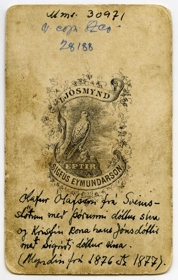 Mms. 30971
28/88
LJÓSMYND
EPTIR
SIGFÚS EYMUNDARSON
Ólafur Ólafsson frá Sveins-
stöðum með Þórunni dóttur sína
og Kristín kona hans Jónsdóttir
með Sigríði dóttur sína.
(Myndin frá 1876 eða 1877).